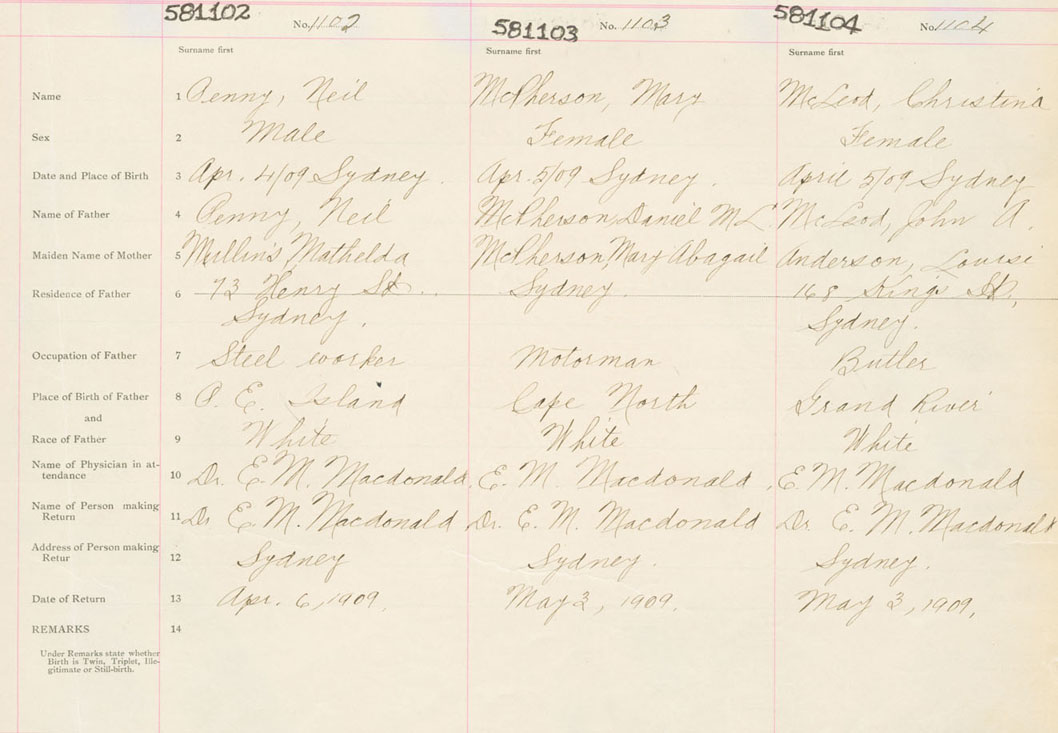 581102 No. 1102 581103 No. 1103 581104 No. 1104
Surname first Surname first Surname first
Name 1 Penny, Neil McPherson, Mary McLeod, Christina
Sex 2 Male Female Female
Date and Place of Birth 3 Apr. 4/09 Sydney. Apr. 5/09 Sydney. April 5/09 Sydney
Name of Father 4 Penny, Neil McPherson, Daniel McL. McLeod, John A.
Maiden Name of Mother 5 Mullins, Mathelda McPherson, Mary Abagail Anderson, Louise
Residence of Father 6 73 Henry St. Sydney. 168 King's St.,
Sydney. Sydney.
Occupation of Father 7 Steel worker Motorman Butler
Place of Birth of Father 8 P. E. Island Cape North Grand River
and
Race of Father 9 White White White
Name of Physician in at-
tendance 10 Dr. E. M. Macdonald, E. M. Macdonald, E. M. Macdonald
Name of Person making
Return 11 Dr E. M. Macdonald Dr. E. M. Macdonald Dr. E. M. Macdonald
Address of Person making
Retur 12 Sydney Sydney. Sydney.
Date of Return 13 Apr. 6, 1909. May 3, 1909. May 3, 1909.
REMARKS 14
Under Remarks state whether
Birth is Twin, Triplet, Ille-
gitimate or Still-birth.